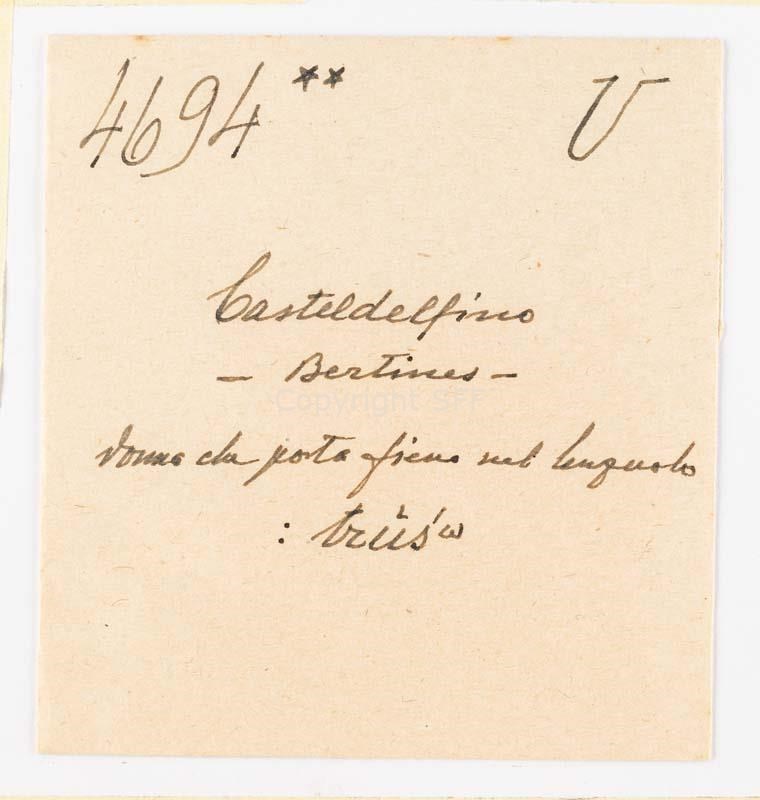 4694** V
Casteldelfino
- Bertines -
donna che porta fieno nel lenzuolo
:
Copyright SFI